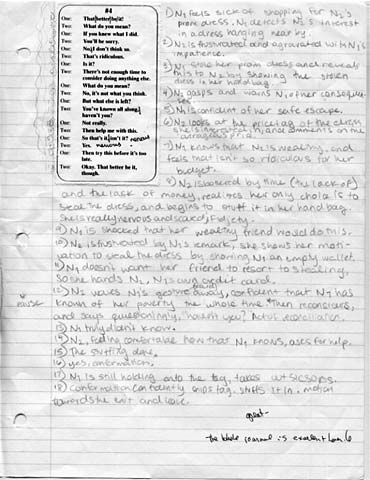 #4
One: That better be it!
Two: What do you mean?
One: If you knew what I did.
Two: You'll be sorry.
One: No, I don't think so.
Two: That's ridiculous.
One: Is it?
Two: There's not enough time to
consider doing anything else.
One: What do you mean?
Two: No, it's not what you think.
One: But what else is left?
Two: You've known all along,
haven't you?
One: Not really.
Two: Then help me with this.
One: So that's it, isn't it? nervous
Two: Yes. nervous
One: Then try this before it's too
late.
Two: Okay. That better be it,
though.
1) N1 feels sick of shopping for N2's
prom dress. N1 detects N2's interest
in a dress hanging near by.
2) N2 is frustrated and aggravated with N1's
impatience.
3) N1 stole her prom dress and reveals
this to N2 by showing the stolen
dress in her hand bag.
4) N2 gasps and warns N1 of her consequences
5) N1 is confident of her safe escape.
6) N2 looks at the price tag of the dress
she is interested in, and comments on the
outrageous price.
7) N1 knows that N2 is wealthy, and
feels that isn't so ridiculous for her
budget.
8) N2 is bothered by time (the lack of)
and the lack of money, realizes her only choice is to
steal the dress, and begins to stuff it in her hand bag.
She is really nervous and scared, fidgety.
9) N1 is shocked that her wealthy friend would do this.
10) N2 is frustrated by N1's remark, she shows her moti-
vation to steal the dress by showing N1 an empty wallet.
11) N1 doesn't want her friend to resort to stealing,
so she hands N2, N1's own credit card.
12) N2 waves N1's gesture away, confident that N1 has
known of her poverty the whole time. Then reconsiders,
pause
and says questioningly, "haven't you?"
13) N1 truly didn't know.
14) N2, feeling comfortable now that N1 knows, asks for help.
15) The
16) yes, confirmation.
17) N1 is still holding onto the tag, takes out
18) Confirmation confidently snips tag. stuffs it in. motion
towards the exit and leave.
great
the whole journal is excellent